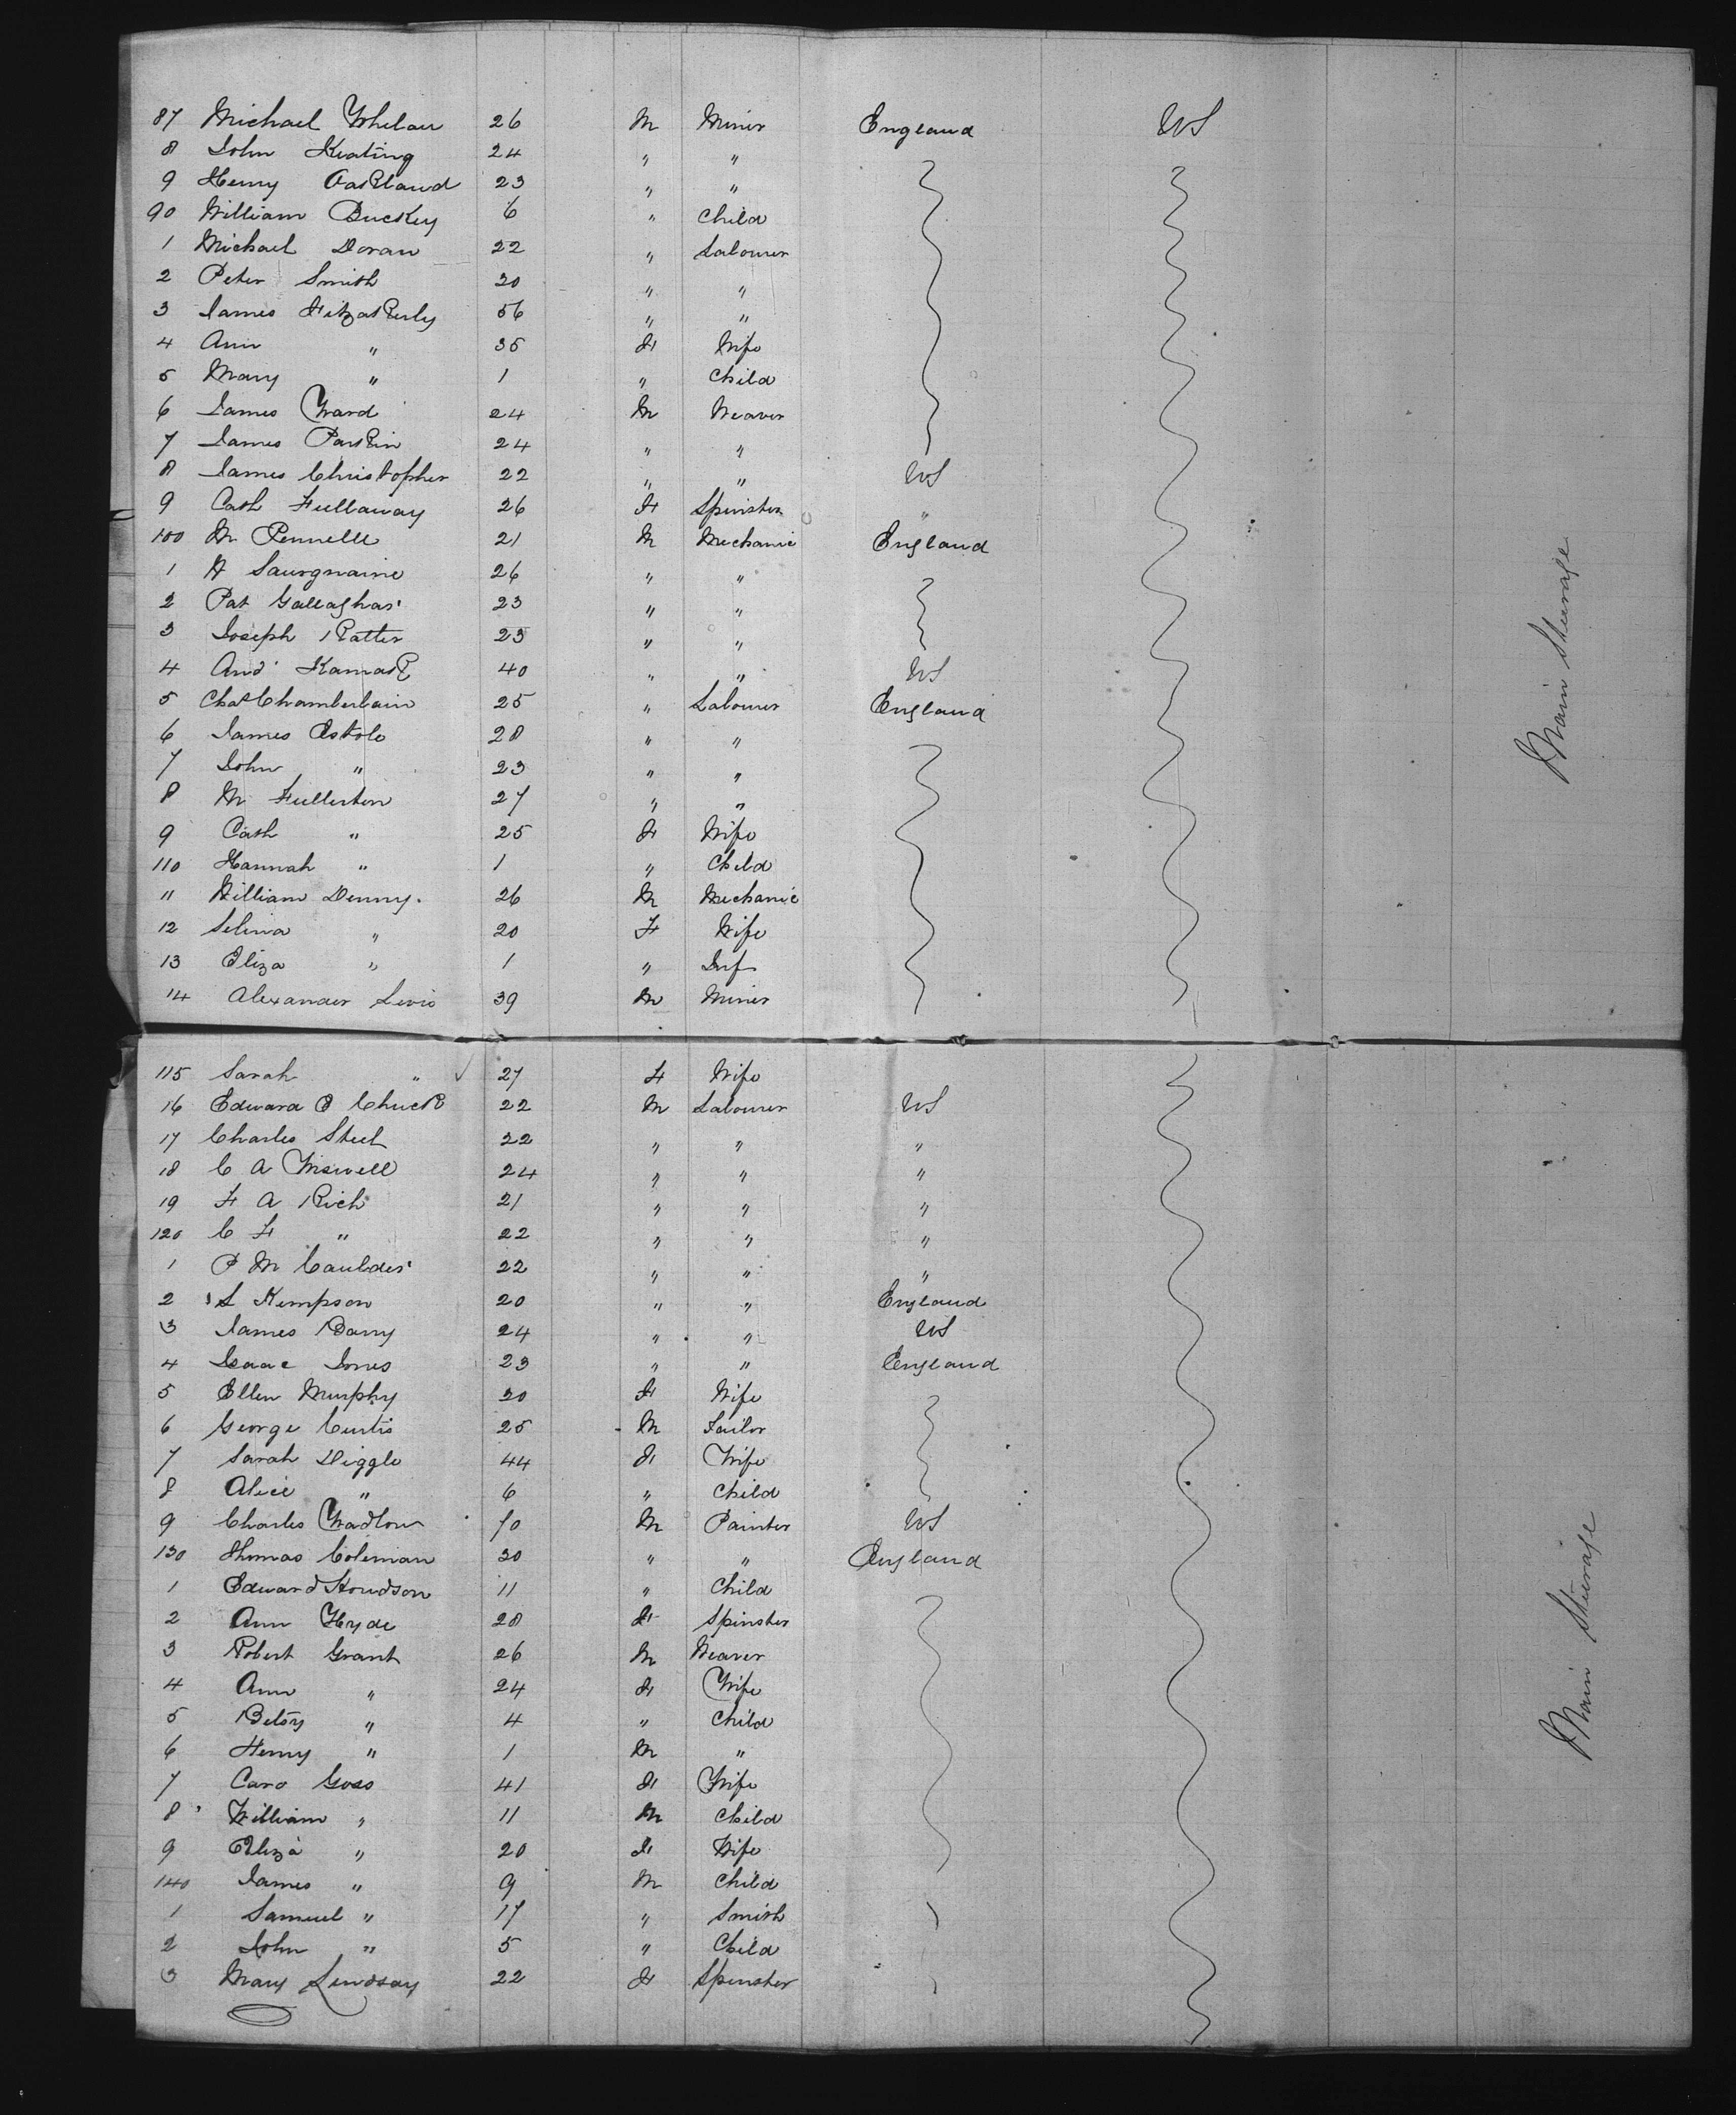 87 Michael Whelan 26 M Miner England US
8 John Keating 24 " "
9 Henry Oakland 23 " "
90 William Buckey 6 " Child
1 Michael Doran 22 " Labourer
2 Peter Smith 30 " "
3 James 56 " "
4 Ann " 35 F Wife
5 Mary " 1 " Child
6 James Ward 24 M Weaver
7 James Parkin 24 " "
8 James Christopher 22 " " US
9 Cath Fullaway 26 F Spinster "
100 M 21 M Mechanic England
1 26 " "
2 Pat Gallaghar 23 " "
3 Joseph Ratter 23 " "
4 And Kamak 40 " " US
5 Chas Chamberlain 25 " Labourer England
6 James 28 " "
7 John " 23 " "
8 M Fullerton 27 " "
9 Cath " 25 F Wife
110 Hannah " 1 " Child
11 William Denny. 26 M Mechanic
12 Selina " 20 F Wife
13 Eliza " 1 " Inf
14 Alexander 39 M Miner
115 Sarah " 27 F Wife
16 Edward E Chuck 22 M Labourer US
17 Charles Steel 22 " " "
18 C A 24 " " "
19 F A Rich 21 " " "
120 C F " 22 " " "
1 P M 22 " " "
2 S Kempson 20 " " England
3 James Barry 24 " " US
4 Isaac Jones 23 " " England
5 Ellen Murphy 30 F Wife
6 George Curtis 25 M Tailor
7 Sarah Diggle 44 F Wife
8 Alice " 6 " Child
9 Charles Wadlow 70 M Painter US
130 Thomas Coleman 30 " " England
1 Edward Houdson 11 " Child
2 Ann Hyde 28 F Spinster
3 Robert Grant 26 M Weaver
4 Ann " 24 F Wife
5 Betsy " 4 " Child
6 Henry " 1 M "
7 Caro Goss 41 F Wife
8 William " 11 M Child
9 Eliza " 20 F Wife
140 James " 9 M Child
1 Samuel " 17 " Smith
2 John " 5 " Child
3 Mary Lindsay 22 F Spinster
Main Steerage
Main Steerage